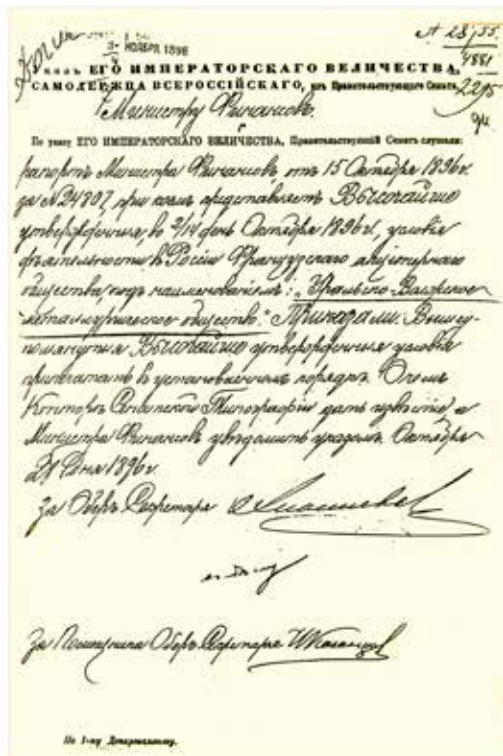 3- НОЯБРЯ 1896
№ 28/55.
4881
2295
Указъ ЕГО ИМПЕРАТОРСКАГО ВЕЛИЧЕСТВА,
САМОДЕРЖЦА ВСЕРОССІЙСКАГО, изъ Правительствующаго Сената,
Министру Финансовъ.
По указу ЕГО ИМПЕРАТОРСКАГО ВЕЛИЧЕСТВА, Правительствующій Сенатъ слушали:
рапортъ Министра Финансовъ, отъ 15 Октября 1896 г.
за № 24807, при коемъ представляетъ Высочайше
утвержденныя, во 2/14 день Октября 1896 г., условія
дѣятельности въ Россіи Французскаго акціонернаго
общества, подъ наименованіемъ: "Уральско-Волжское
металлургическое общество". Приказали: Вышеу-
помянутыя Высочайше утвержденныя условія
припечатать въ установленномъ порядкѣ. О чемъ
Конторѣ Сенатской Типографіи дать извѣстіе, а
Министра Финансовъ увѣдомить указомъ. Октября
21 дня 1896 г.
За Оберъ-Секретаря
За Помощника Оберъ-Секретаря
По 1-му Департаменту.